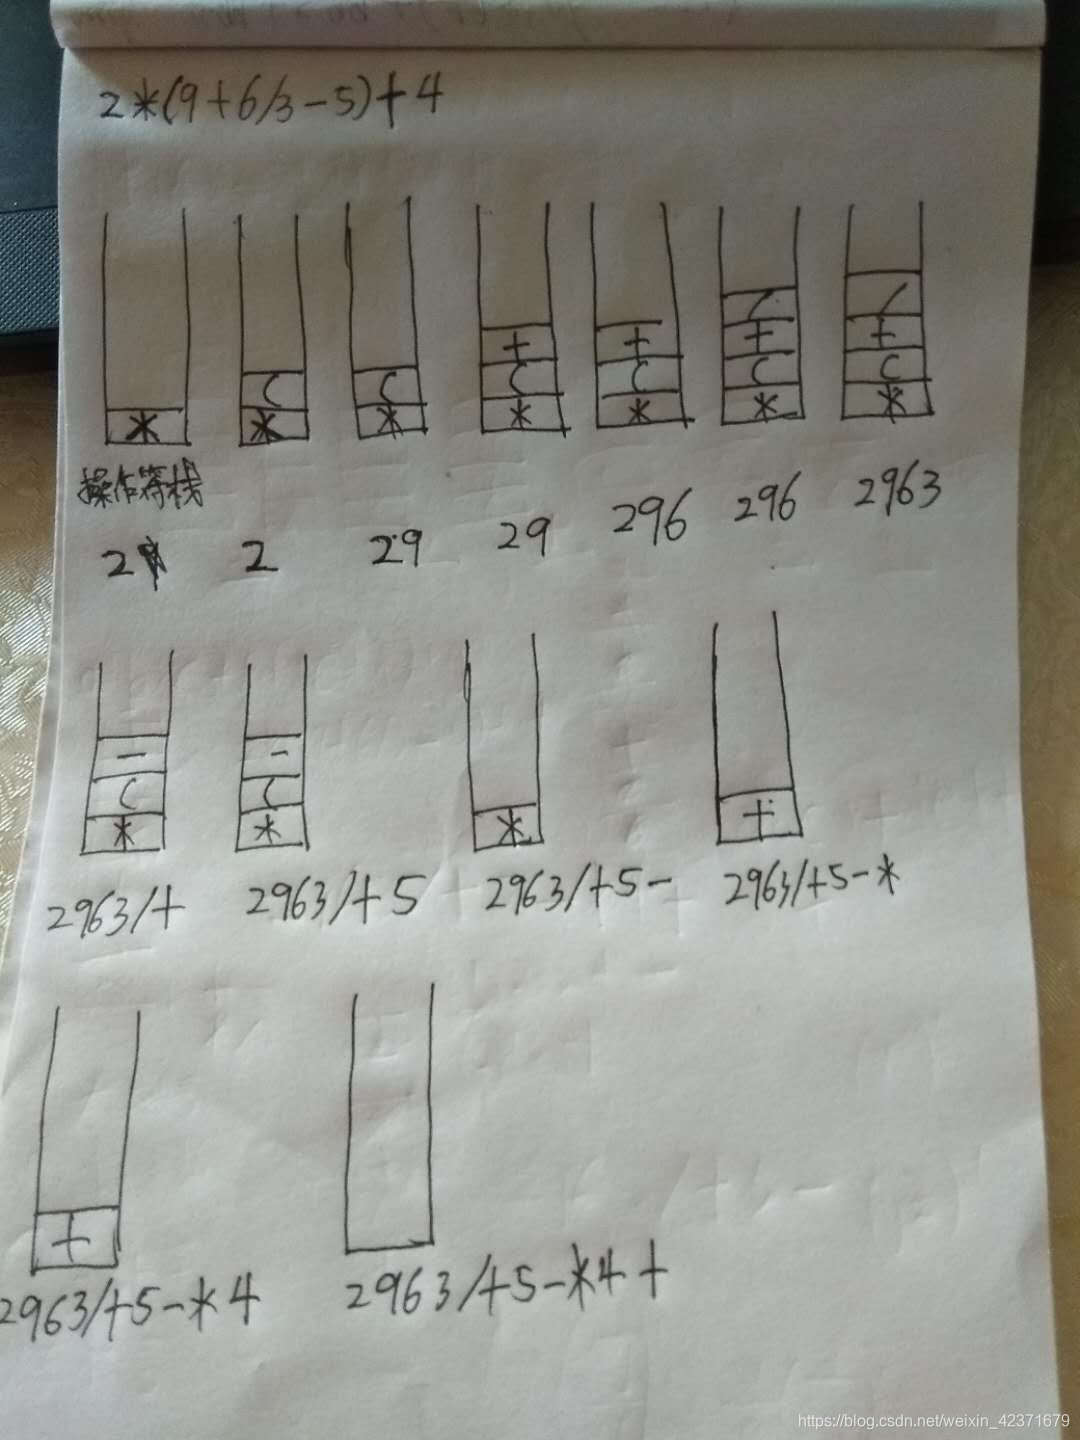 2*(9+6/3-5)+4
* ( * ( * + ( * + ( * / + ( * / + ( *
操作符栈
2 2 29 29 296 296 2963
- ( * - ( * * +
2963/+ 2963/+5 2963/+5- 2963/+5-*
+
2963/+5-*4 2963/+5-*4+
https://blog.csdn.net/weixin_42371679